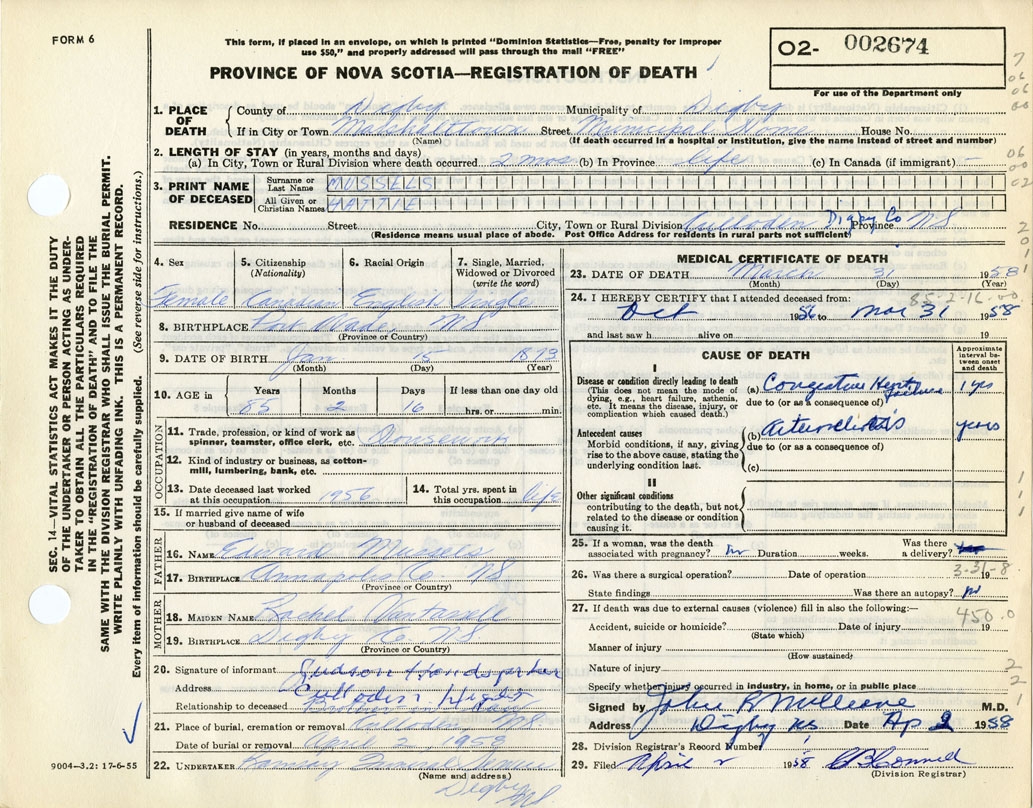 FORM 6
This form, if placed in an envelope, on which is printed "Dominion Statistics—Free, penalty for improper
use $50," and properly addressed will pass through the mail "FREE"
PROVINCE OF NOVA SCOTIA—REGISTRATION OF DEATH
O2- 002674
For use of the Department only
1. PLACE OF DEATH
County of Digby Municipality of Digby
If in City or Town Marshalltown Street Municipal Home House No.
(Name) (If death occurred in a hospital or institution, give the name instead of street and number)
2. LENGTH OF STAY (in years, months and days)
(a) In City, Town or Rural Division where death occurred 2 mos (b) In Province life (c) In Canada (if immigrant) —
3. PRINT NAME OF DECEASED
Surname or Last Name MUSSELS
All Given or Christian Names HATTIE
RESIDENCE No. Street City, Town or Rural Division Culloden Digby Co Province NS
(Residence means usual place of abode. Post Office Address for residents in rural parts not sufficient)
4. Sex 5. Citizenship (Nationality) 6. Racial Origin 7. Single, Married, Widowed or Divorced (write the word)
Female Canadian English Single
8. BIRTHPLACE Port Wade, NS
(Province or Country)
9. DATE OF BIRTH Jan 15 1873
(Month) (Day) (Year)
10. AGE in Years Months Days If less than one day old
85 2 16 hrs. or min.
OCCUPATION
11. Trade, profession, or kind of work as spinner, teamster, office clerk, etc. Housework
12. Kind of industry or business, as cotton-mill, lumbering, bank, etc.
13. Date deceased last worked at this occupation 1956
14. Total yrs. spent in this occupation life
15. If married give name of wife or husband of deceased
FATHER
16. NAME Edward Mussels
17. BIRTHPLACE Annapolis Co NS
(Province or Country)
MOTHER
18. MAIDEN NAME Rachel
19. BIRTHPLACE Digby Co NS
(Province or Country)
20. Signature of informant Judson Handspiker
Address Culloden Digby
Relationship to deceased Brother in Law
21. Place of burial, cremation or removal Culloden NS
Date of burial or removal April 2, 1958
22. UNDERTAKER Ramsay Funeral
(Name and address)
Digby NS
MEDICAL CERTIFICATE OF DEATH
23. DATE OF DEATH March 31 1958
(Month) (Day) (Year)
85-2-16-00
24. I HEREBY CERTIFY that I attended deceased from:
Oct 1956 to Mar 31 1958
and last saw h alive on 19
CAUSE OF DEATH
Approximate interval between onset and death
I
Disease or condition directly leading to death
(This does not mean the mode of dying, e.g., heart failure, asthenia, etc. It means the disease, injury, or complication which caused death.)
(a) Congestive Heart failure 1 yr
due to (or as a consequence of)
Antecedent causes
Morbid conditions, if any, giving rise to the above cause, stating the underlying condition last.
(b) Arteriosclerosis years
due to (or as a consequence of)
(c)
II
Other significant conditions
contributing to the death, but not related to the disease or condition causing it.
25. If a woman, was the death associated with pregnancy? no Duration weeks. Was there a delivery?
26. Was there a surgical operation? Date of operation 19
3-31-8
State findings Was there an autopsy? no
27. If death was due to external causes (violence) fill in also the following:—
450.0
Accident, suicide or homicide? Date of injury 19
(State which)
Manner of injury
(How sustained)
Nature of injury
Specify whether injury occurred in industry, in home, or in public place
Signed by John R M.D.
Address Digby NS Date Ap 2 1958
28. Division Registrar's Record Number
29. Filed April 2 1958
(Division Registrar)
SEC. 14—VITAL STATISTICS ACT MAKES IT THE DUTY
OF THE UNDERTAKER OR PERSON ACTING AS UNDER-
TAKER TO OBTAIN ALL THE PARTICULARS REQUIRED
IN THE "REGISTRATION OF DEATH" AND TO FILE THE
SAME WITH THE DIVISION REGISTRAR WHO SHALL ISSUE THE BURIAL PERMIT.
WRITE PLAINLY WITH UNFADING INK. THIS IS A PERMANENT RECORD.
Every item of information should be carefully supplied. (See reverse side for instructions.)
9004—3.2: 17-6-55